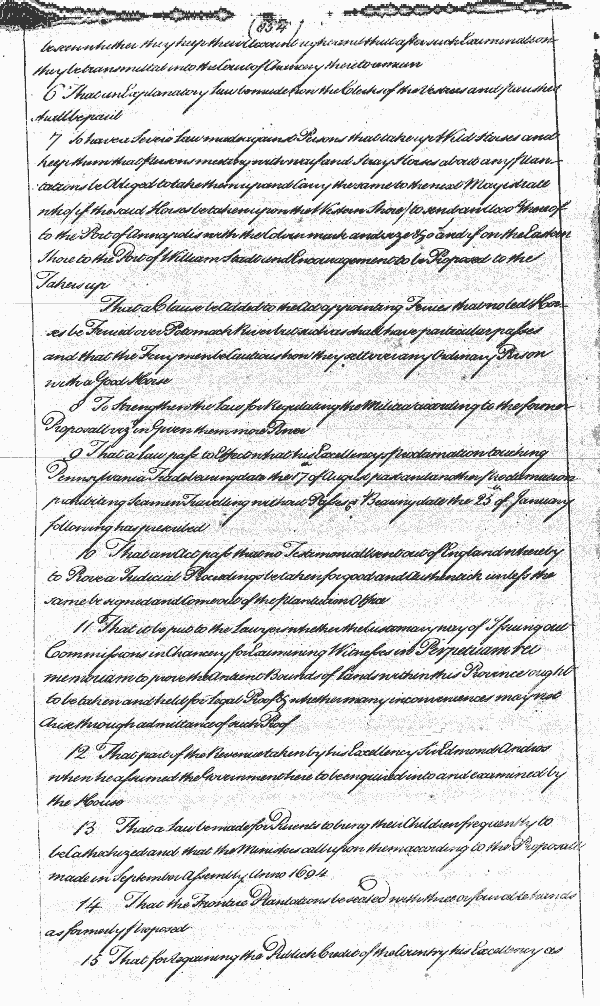 (834)
be seen whether they keep their Accounts right and that after such Examination
they be transmitted into the Court of Chancery there to remain
6 That an Explanatory Law be made how the Clerks of the Vestries and
shall be paid
7 To have a Severe Law made against Persons that take up Wild Horses and
keep them that Persons meeting with wayf and Stray Horses about any plan-
tations be Obliged to take them up and Carry the same to the next Magistrate
who (if the said Horses be taken up on the Western Shore) to send an Acco.t thereof
to the Port of Annapolis with the Colour mark and size &c and if on the Eastern
Shore to the Port of William Stadt and Encouragement to be Proposed to the
Takers up
That a Clause be Added to the Act appointing Ferries that no led Hor-
ses be Ferried over Potomack River but such as shall have particular passes
and that the Ferrymen be Cautious how they sett over any Ordinary Person
with a Good Horse
8 To Strengthen the Law for Regulating the Militia according to the former
Proposall viz.t in Given them more Power
9 That a Law pass to Effect what his Excellency's proclamation touching
Pennsylvania Trade bearing date the 17th of August past and another Proclamation
prohibiting Seamen Travelling without Passes Bearing date the 25th of January
following has prescribed
10 That an Act pass that no Testimonial sent out of England whereby
to Prove a Judicial Proceedings be taken for good and Authentick unless the
same be signed and Come out of the Plantation Office
11 That it be put to the Lawyers whether the Customary way of Issuing out
Commissions in Chancery for Examining Witnesses in Perpetuam rei
memoriam to prove the Antient Bounds of Lands within this Province ought
to be taken and held for Legal Proof & whether many inconveniences may not
Arise through admittance of such Proof
12 That part of the Revenue taken by his Excellency S.r Edmond Andros
when he assumed the Government here to be enquired into and examined by
the House
13 That a Law be made for Parents to bring their Children frequently to
be Cathechized and that the Ministers call upon them according to the Proposalls
made in September Assembly Anno 1694
14 That the Frontier Plantations be seated with three or four able hands
as formerly proposed
15 That for regaining the Publick Credit of the Country his Excellency as